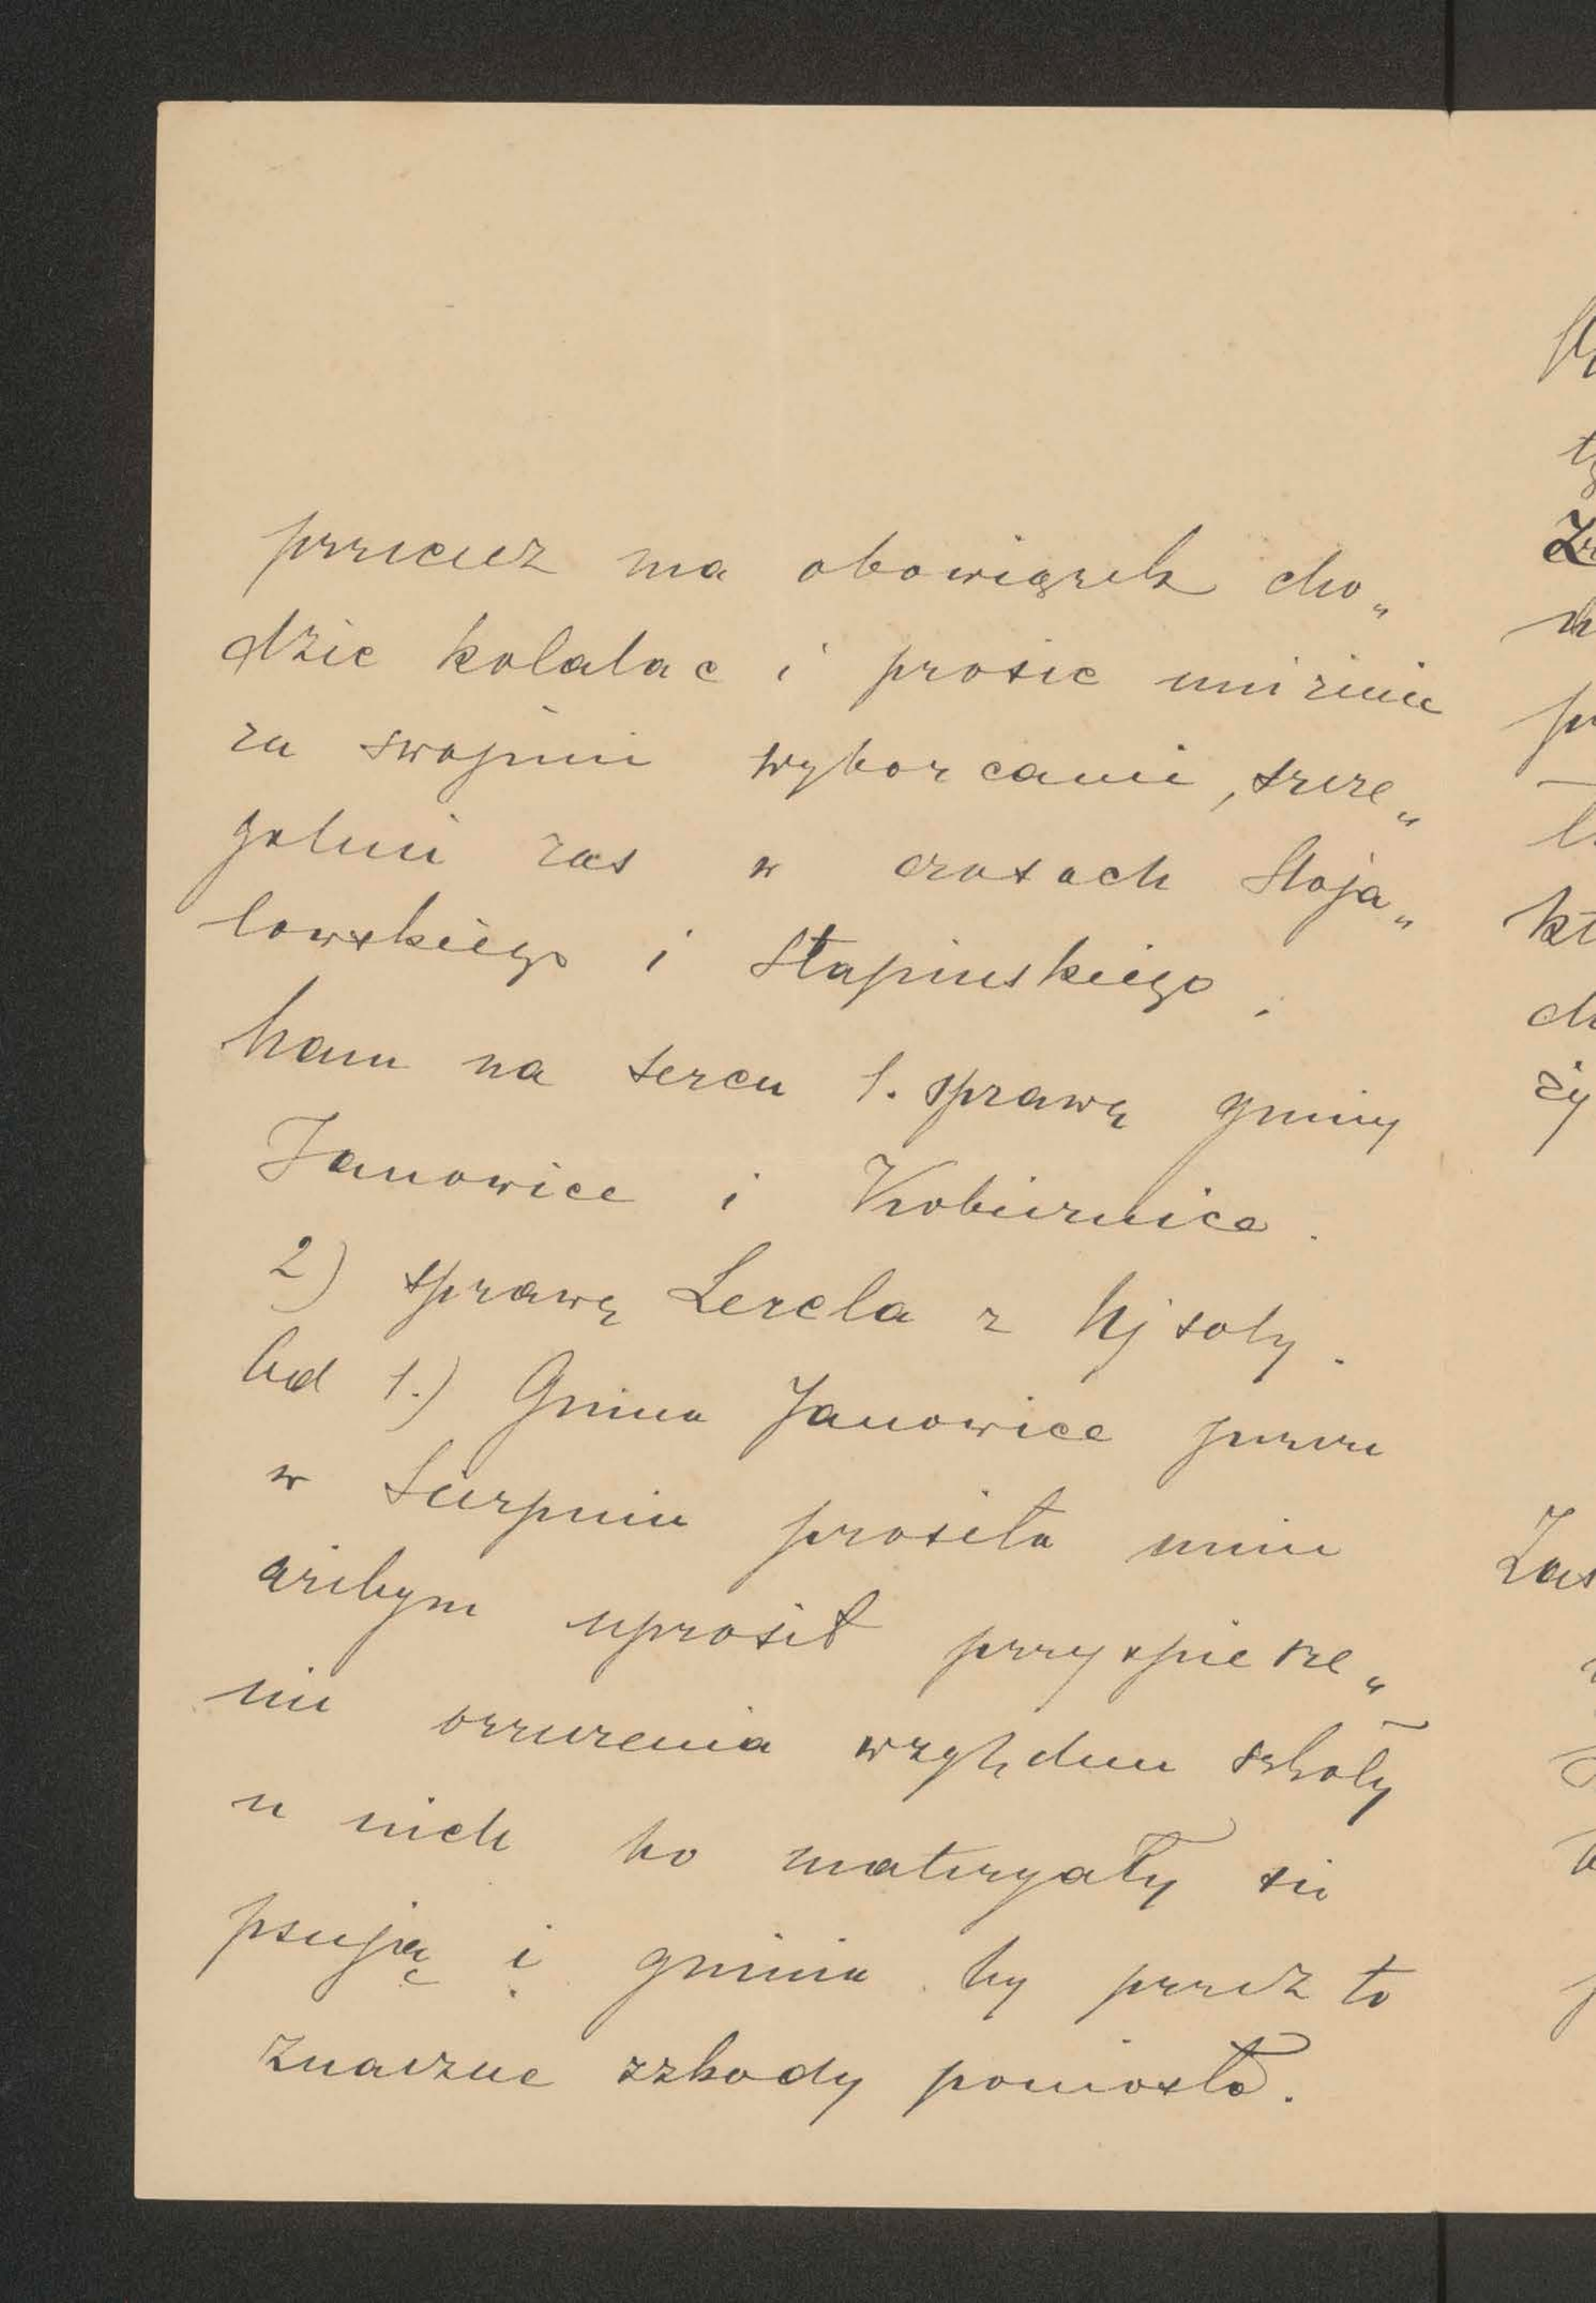 przecież ma obowiązek cho„
dzic kolatac i prosic uniżenie
za swojmi wyborcami, szcze„
golnie zas w czasach Stoja„
lowskiego i Stapinskiego.
Mam na sercu 1. sprawę gminy
Janowice i Kobiernice.
2) sprawę Lercla z Ujsoly.
Ad 1.) Gmina Janowice jeszcze
w Sierpniu prosiła mnie
ażebym uprosił przyspiesze„
nie orzeczenia względem szkoły
u nich bo materyały się
psują i gmina by przez to
znaczne szkody poniosła.